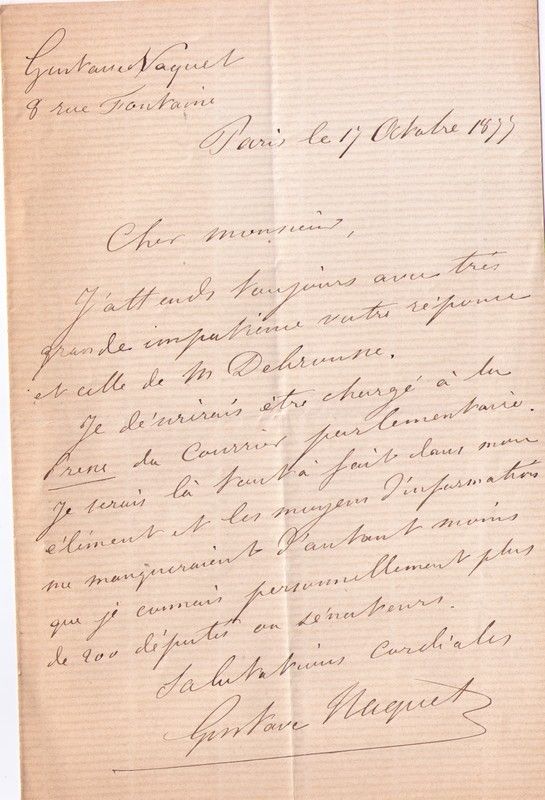 Gustave Naquet
8 rue Fontaine
Paris le 17 Octobre 1877
Cher monsieur,
J'attends toujours avec très
grande impatience votre réponse
et celle de M Debrousse.
Je désirerais être chargé à la
Presse du Courrier parlementaire.
Je serais là tout à fait dans mon
élément et les moyens d'information
me manqueraient d'autant moins
que je connais personnellement plus
de 200 députés ou sénateurs.
Salutations cordiales
Gustave Naquet